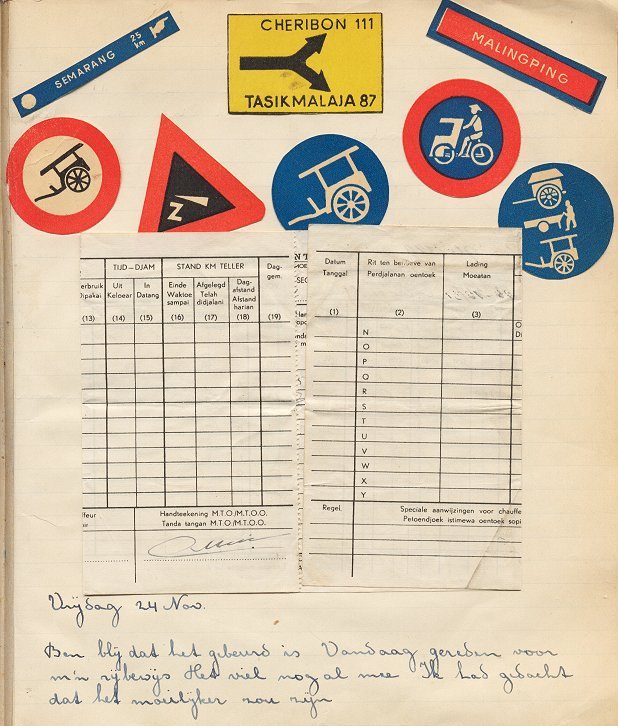 SEMARANG 25 km
CHERIBON 111
TASIKMALAJA 87
MALINGPING
Z
TIJD—DJAM
STAND KM TELLER
Dag-
gem.
erbruik
Dipakai
Uit
Keloear
In
Datang
Einde
Waktoe
sampai
Afgelegd
Telah
didjalani
Dag-
afstand
Afstand
harian
(13) (14) (15) (16) (17) (18) (19)
ffeur
Handteekening M.T.O./M.T.O.O.
Tanda tangan M.T.O./M.T.O.O.
Datum
Tanggal
Rit ten behoeve van
Perdjalanan oentoek
Lading
Moeatan
(1) (2) (3)
N
O
P
Q
R
S
T
U
V
W
X
Y
Regel.
Speciale aanwijzingen voor chauffe
Petoendjoek istimewa oentoek sopi
Vrijdag 24 Nov.
Ben blij dat het gebeurd is Vandaag gereden voor
m'n rijbewijs Het viel nog al mee Ik had gedacht
dat het moeilijker zou zijn